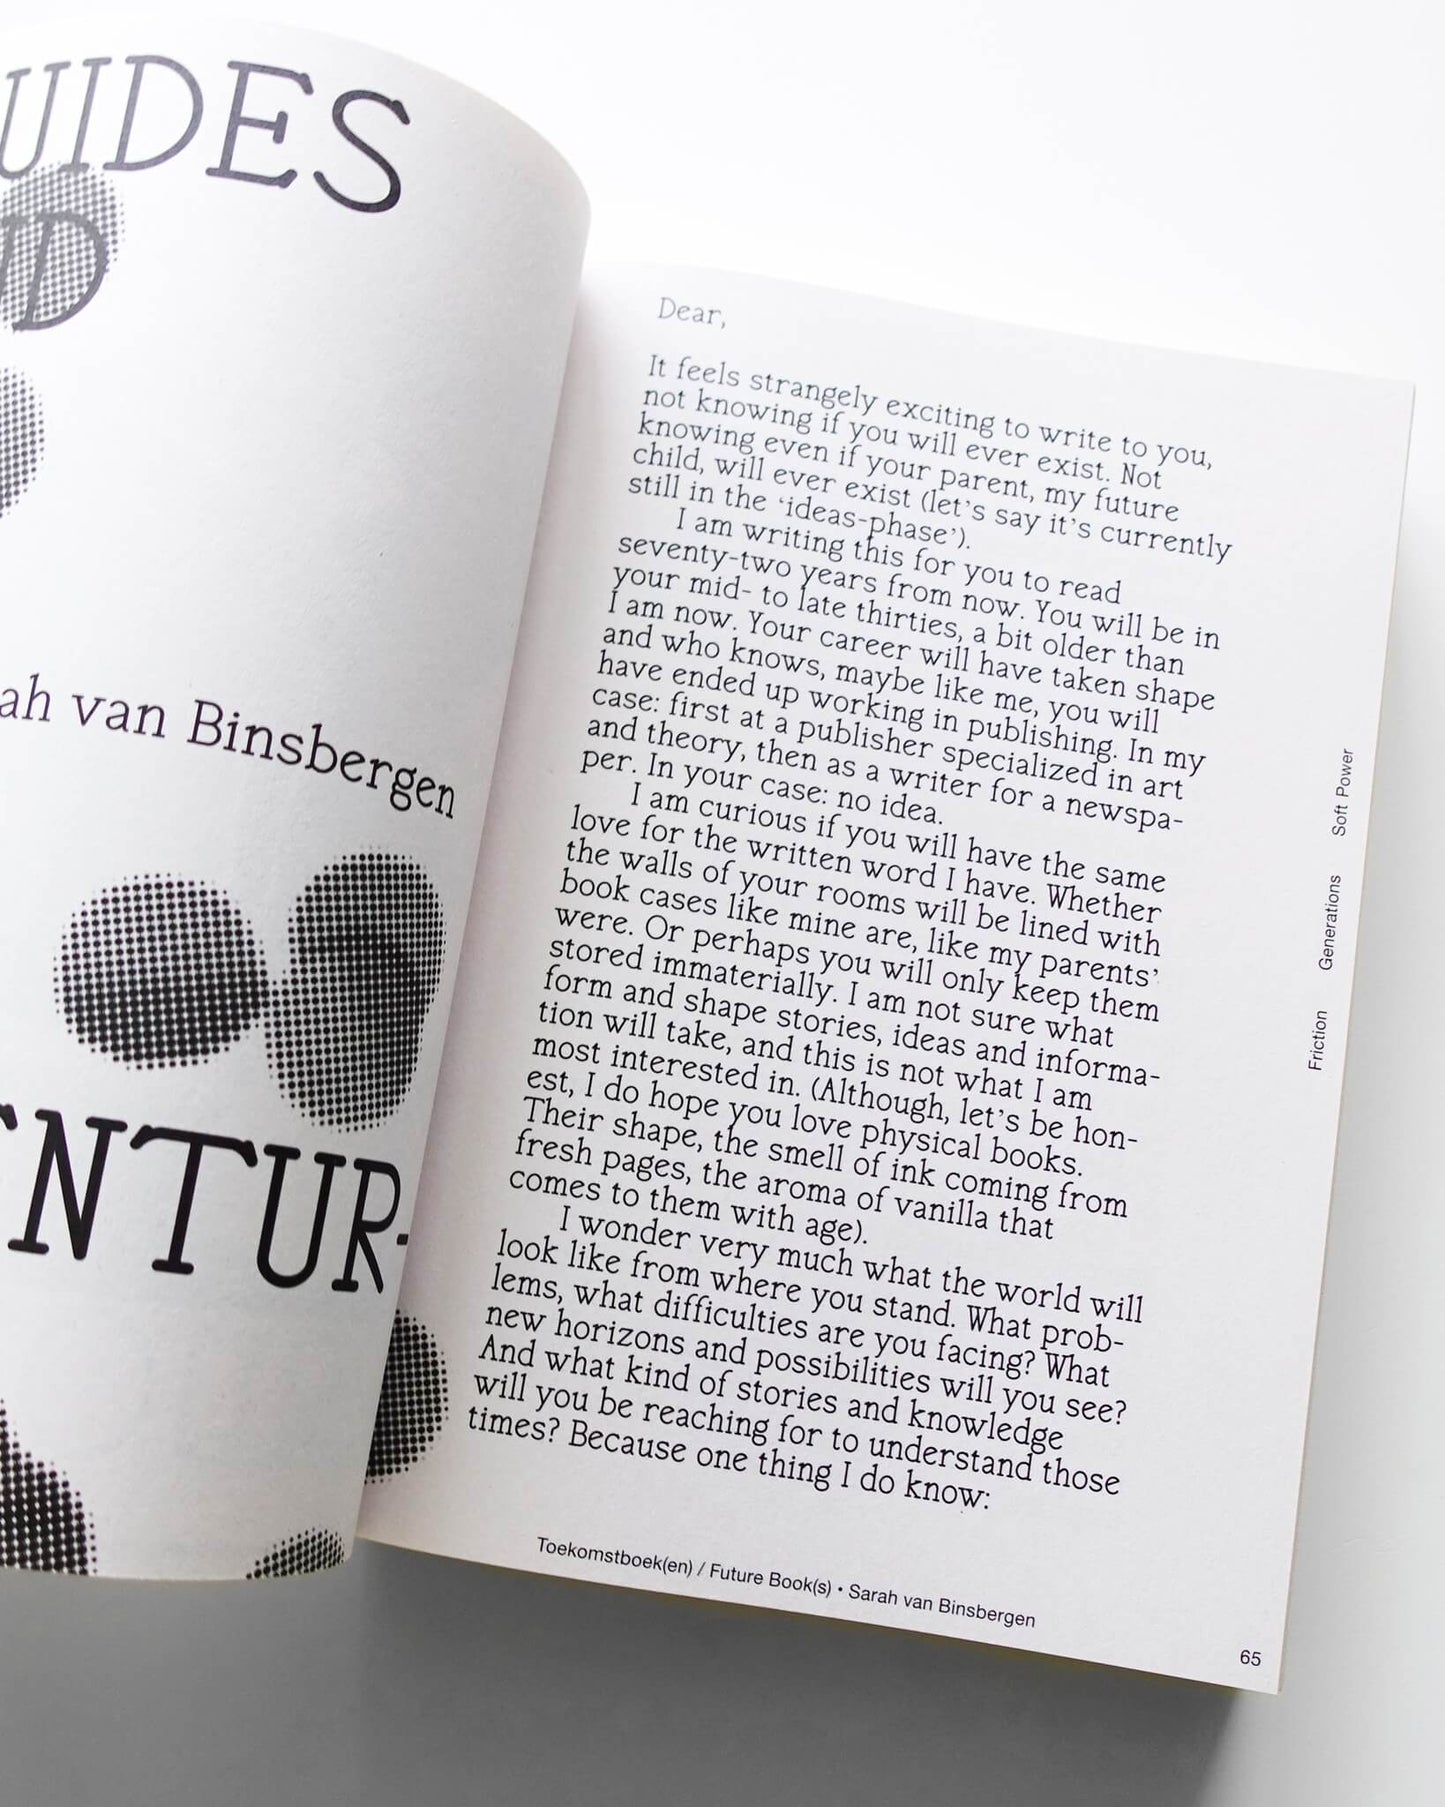 UIDES
ND
ah van Binsbergen
ENTUR-
Dear,
It feels strangely exciting to write to you,
not knowing if you will ever exist. Not
knowing even if your parent, my future
child, will ever exist (let's say it's currently
still in the ‘ideas-phase’).
I am writing this for you to read
seventy-two years from now. You will be in
your mid- to late thirties, a bit older than
I am now. Your career will have taken shape
and who knows, maybe like me, you will
have ended up working in publishing. In my
case: first at a publisher specialized in art
and theory, then as a writer for a newspa-
per. In your case: no idea.
I am curious if you will have the same
love for the written word I have. Whether
the walls of your rooms will be lined with
book cases like mine are, like my parents’
were. Or perhaps you will only keep them
stored immaterially. I am not sure what
form and shape stories, ideas and informa-
tion will take, and this is not what I am
most interested in. (Although, let's be hon-
est, I do hope you love physical books.
Their shape, the smell of ink coming from
fresh pages, the aroma of vanilla that
comes to them with age).
I wonder very much what the world will
look like from where you stand. What prob-
lems, what difficulties are you facing? What
new horizons and possibilities will you see?
And what kind of stories and knowledge
will you be reaching for to understand those
times? Because one thing I do know:
Friction
Generations
Soft Power
Toekomstboek(en) / Future Book(s) • Sarah van Binsbergen
65